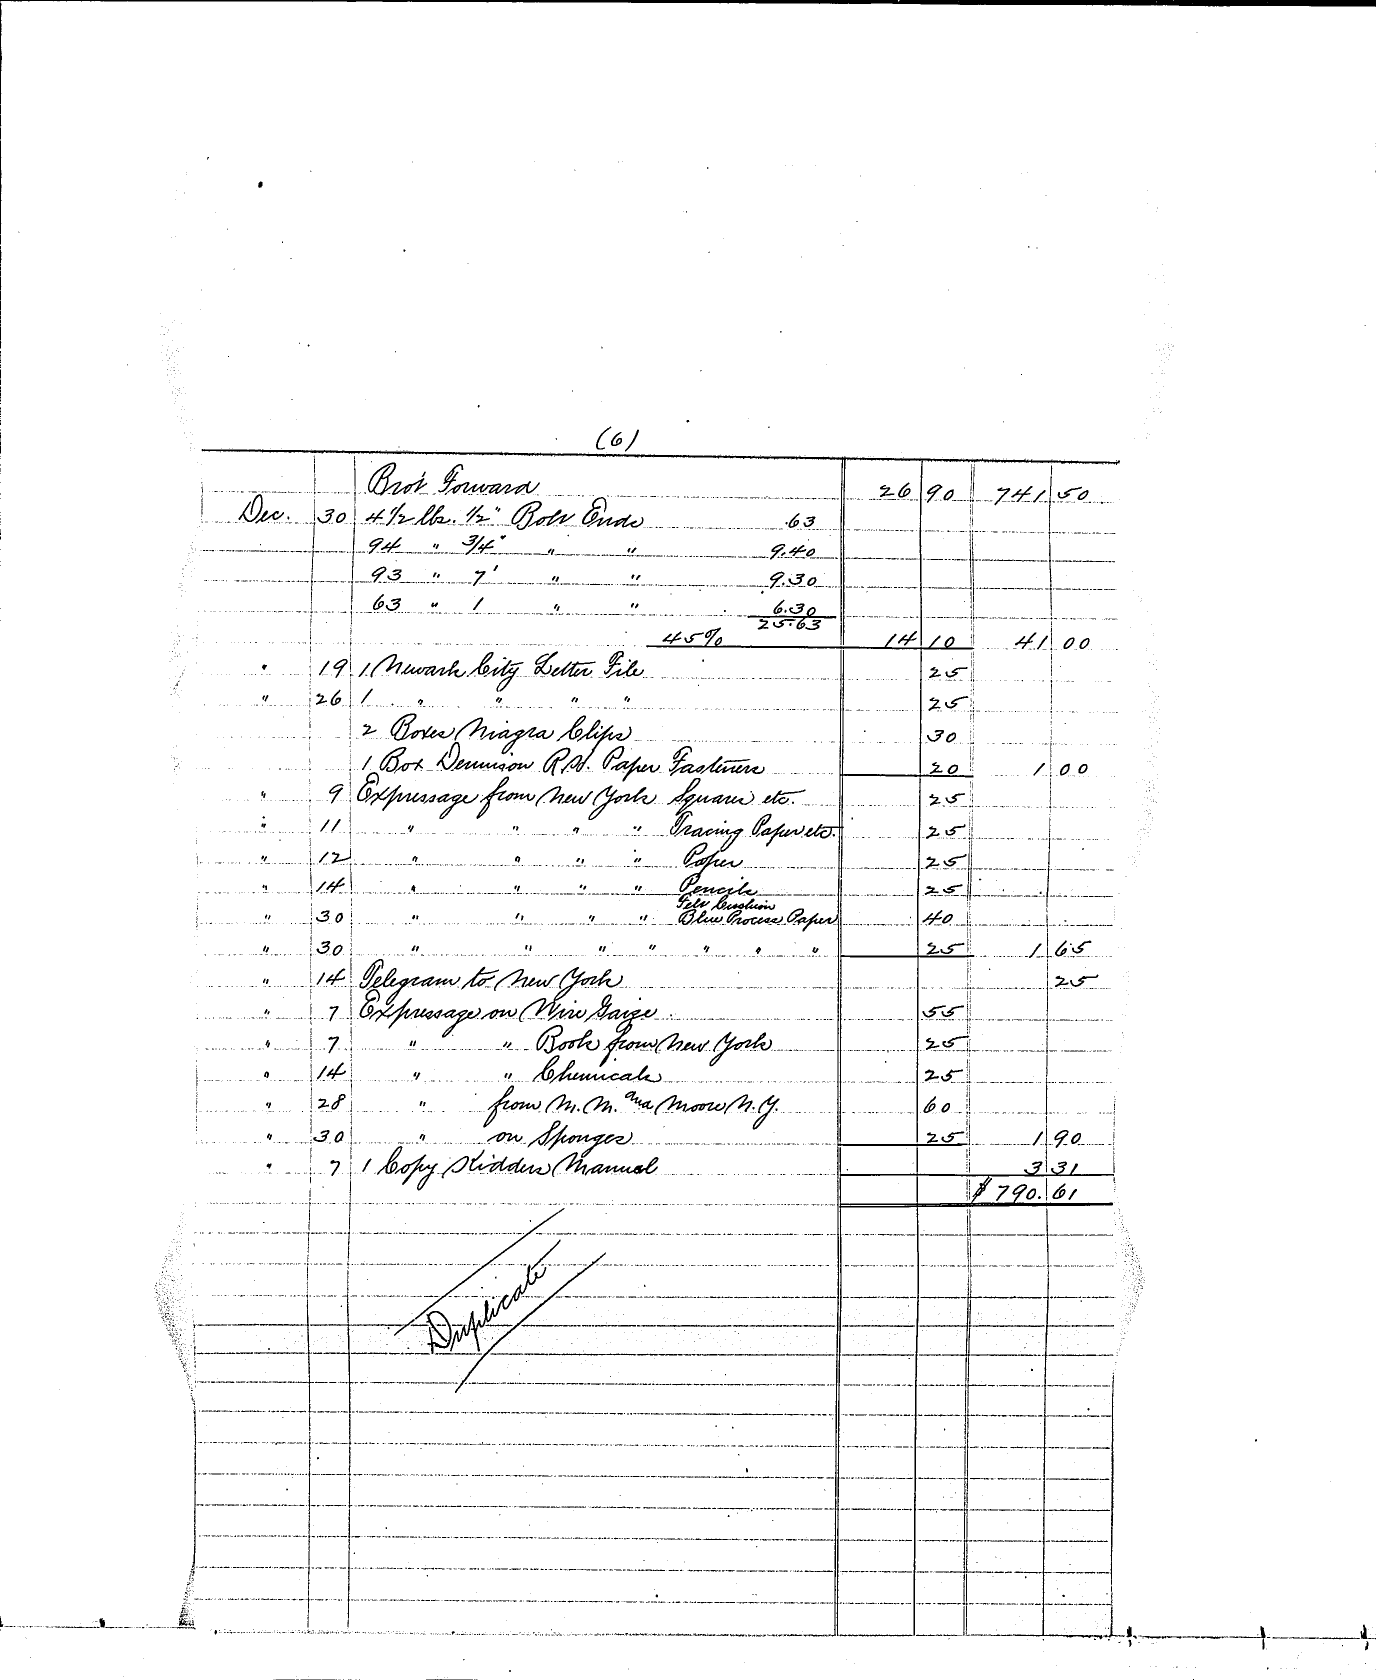 (6)
Brot Forward 26 90 741 50
Dec. 30 4 1/2 lbs. 1/2" Bolt Ends 63
94 " 3/4" " " 9.40
93 " 7' " " 9.30
63 " 1 " " 6.30
25.63
45% 14 10 41 00
" 19 1 Newark City Letter File 25
" 26 1 " " " " 25
2 Boxes Niagra Clips 30
1 Box Dennison R.H. Paper Fasteners 20 1 00
" 9 Expressage from New York Square etc. 25
" 11 " " " " Tracing Paper etc. 25
" 12 " " " " Paper 25
" 14 " " " " Pencils 25
Felt Cushion
" 30 " " " " Blue Process Paper 40
" 30 " " " " " " " 25 1 65
" 14 Telegram to New York 25
" 7 Expressage on Wire Gaize. 55
" 7 " " Book from New York 25
" 14 " " Chemicals 25
" 28 " from M.M. and Moore N.Y. 60
" 30 " on Sponges 25 1 90
" 7 1 Copy Kidders Manual 3 31
$790.61
Duplicate